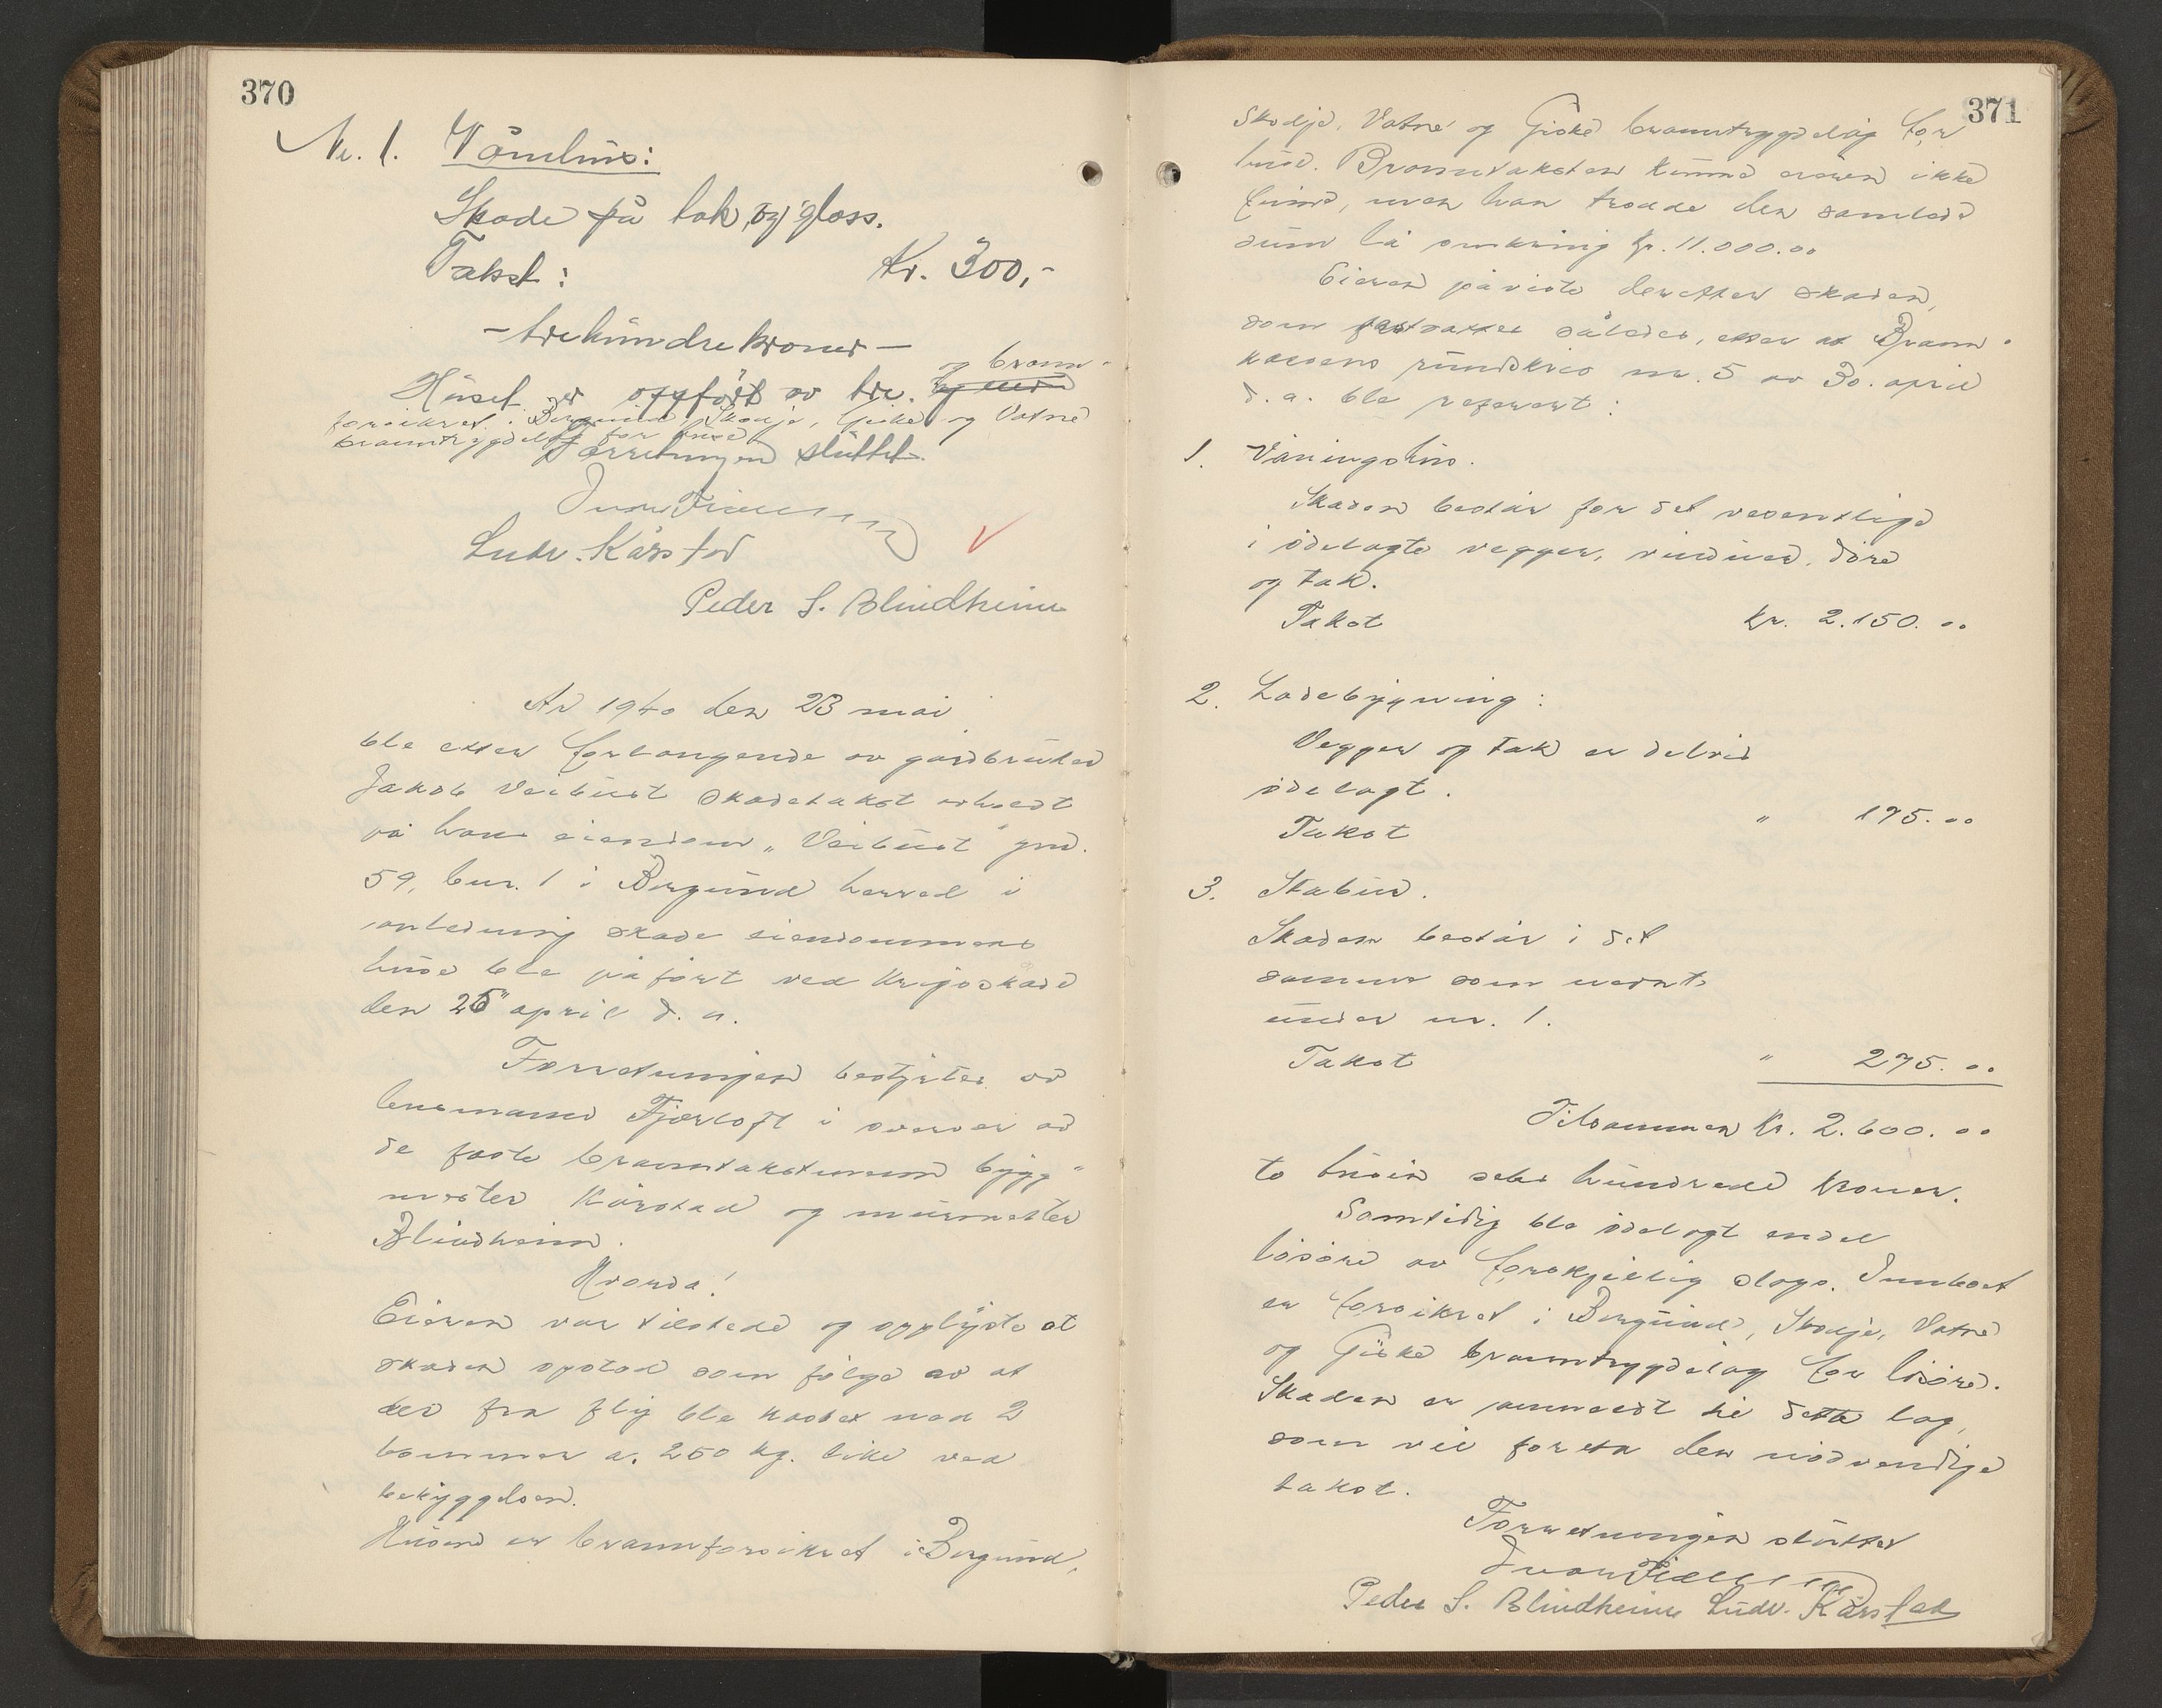 370
Nr. 1. Våmhus:
Skade på tak, og glass.
Takst: Kr. 300,-
- trehundrekroner -
Huset er oppført av tre. og brann-
forsikret i Borgund, Skodje, Giske og Vatne
branntrygdelag for huse
Forretningen sluttet.
Ludv. Kårstad
Peder S. Blindheim
År 1940 den 23 mai
ble etter forlangende av gårdbruker
Jakob Veibust skadetakst avholdt
på hans eiendom „Veibust" gnr.
59, bnr. 1 i Borgund herred i
anledning skade eiendommens
huse ble påført ved krigsskade
den 25" april d. a.
Forretningen bestyrtes av
lensmann Fjørtoft i overvær av
de faste branntakstmenn bygg-
mester Kårstad og murmester
Blindheim.
Hvorda!
Eieren var tilstede og opplyste at
skaden opstod som følge av at
der fra fly ble kastet ned 2
bommer a. 250 kg. like ved
bebyggelsen.
Husene er brannforsikret i Borgund,
371
Skodje, Vatne og Giske branntrygdelag for
huse. Branntaksten kunne eieren ikke
finne, men han trodde den samlede
sum lå omkring kr. 11.000.00
Eieren påviste deretter skaden,
som fastsattes således, etter at Brann-
kassens rundskriv nr. 5 av 30. april
d. a. ble referert:
1. Våningshus.
Skaden består for det vesentlige
i ødelagte vegger, vinduer, døre
og tak.
Takst kr. 2.150.00
2. Ladebygning:
Vegger og tak er delvis
ødelagt.
Takst " 175.00
3. Stabur.
Skaden består i det
samme som nevnt
under nr. 1.
Takst " 275.00
Tilsammen kr. 2.600.00
to tusen seks hundrede kroner.
Samtidig ble ødelagt endel
løsøre av forskjellig slags. Innboet
er forsikret i Borgund, Skodje, Vatne
og Giske branntrygdelag for løsøre.
Skaden er anmeldt til dette lag,
som vil foreta den nødvendige
takst.
Forretningen sluttet
Peder S. Blindheim Ludv. Kårstad